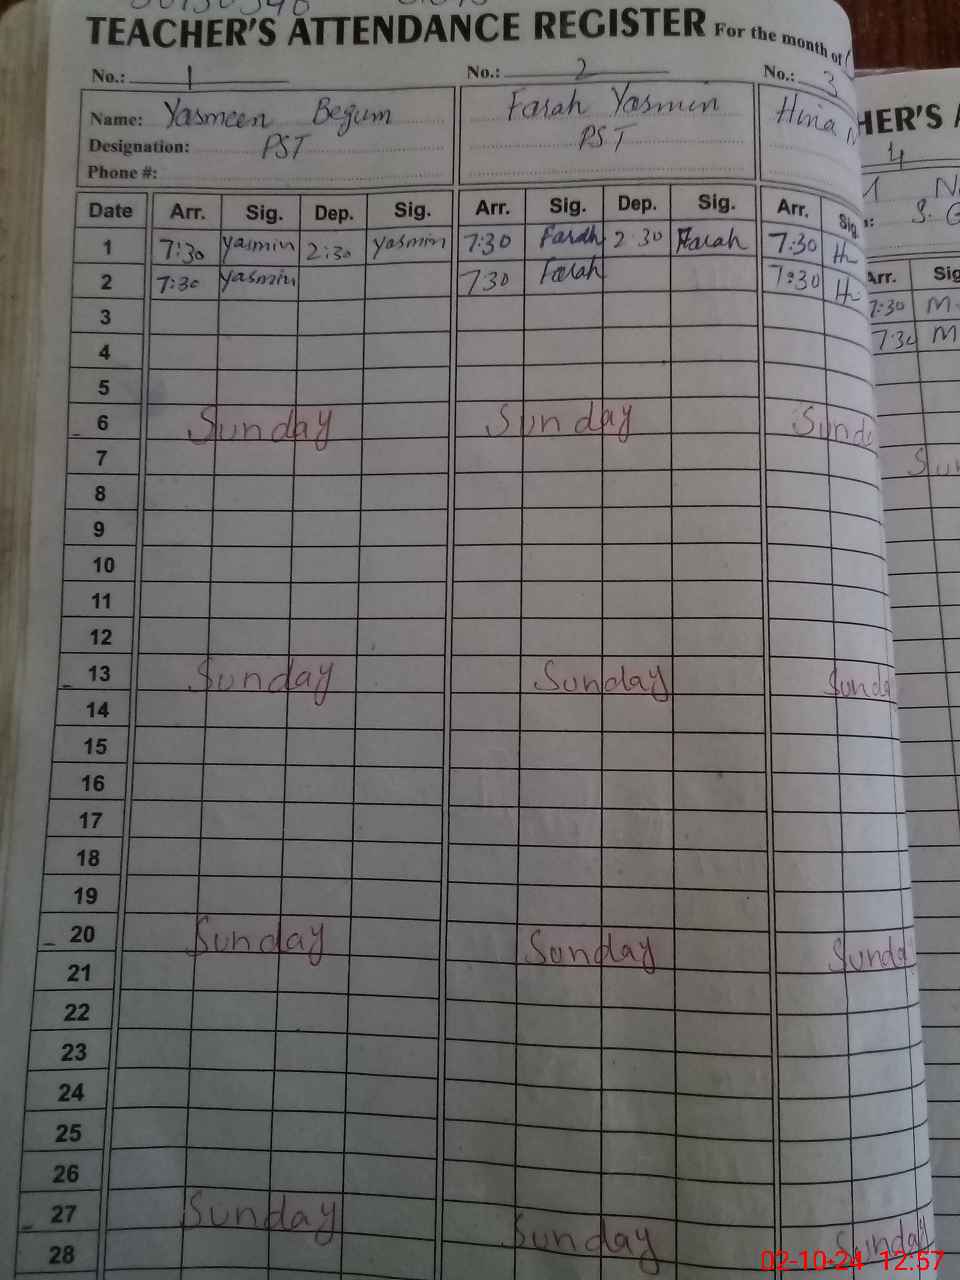 TEACHER'S ATTENDANCE REGISTER For the month of
No.: 1 No.: 2 No.: 3
Name: Yasmeen Begum Farah Yasmin Hina
Designation: PST PST
Phone #:
Date Arr. Sig. Dep. Sig. Arr. Sig. Dep. Sig. Arr. Sig.
1 7:30 yasmin 2:30 yasmin 7:30 Farah 2:30 Farah 7:30 H
2 7:30 yasmin 7:30 Farah 7:30 H
3
4
5
6 Sunday Sunday Sund
7
8
9
10
11
12
13 Sunday Sunday Sunda
14
15
16
17
18
19
20 Sunday Sunday Sunda
21
22
23
24
25
26
27 Sunday Sunday Sunday
28
HER'S A
4
Arr. Sig
7:30 M
7:30 M
Sun
02-10-24 12:57